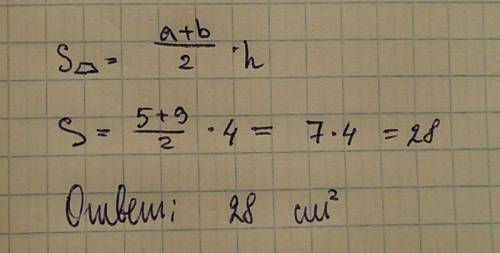 S⏢ = (a+b)/2 · h
S = (5+9)/2 · 4 = 7·4 = 28
Ответ: 28 см²